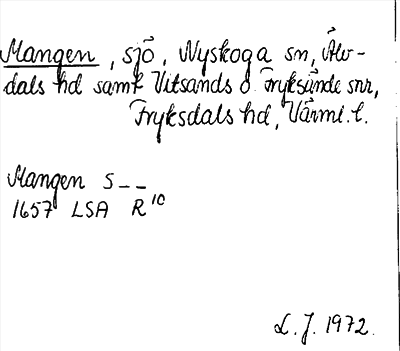 Mangen, sjö, Nyskoga sn, Älv-
dals hd samt Vitsands o Fryksände snr,
Fryksdals hd, Värml. l.
Mangen S--
1657 LSA R10
L. J. 1972.